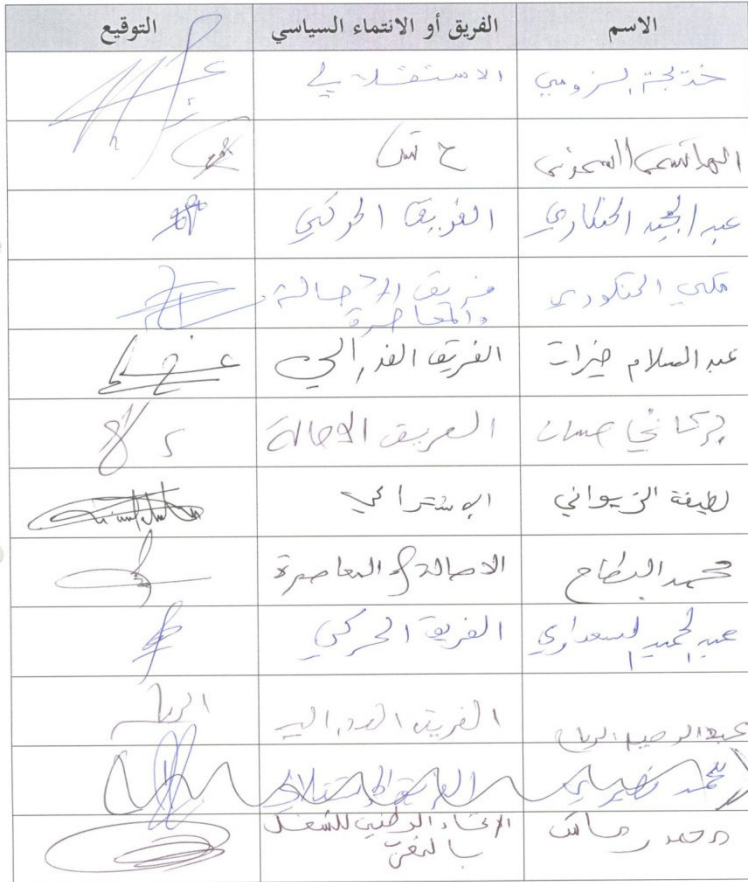 الاسم الفريق أو الانتماء السياسي التوقيع
خديجة الزومي الاستقلالي
الهاشمي السموني
عبد المجيد الحنكاري الفريق الحركي
مكي الحنكوري فريق الأصالة
والمعاصرة
عبد السلام خيرات الفريق الفدرالي
الفريق الاصالة
لطيفة الزيواني الإشتراكي
محمد البطاح الاصالة و المعاصرة
عبد الحميد السعداوي الفريق الحركي
عبد الرحيم الفريق الفدرالي
محمد الفريق الاستقلالي
محمد رماش الاتحاد الوطني للشغل
بالمغرب